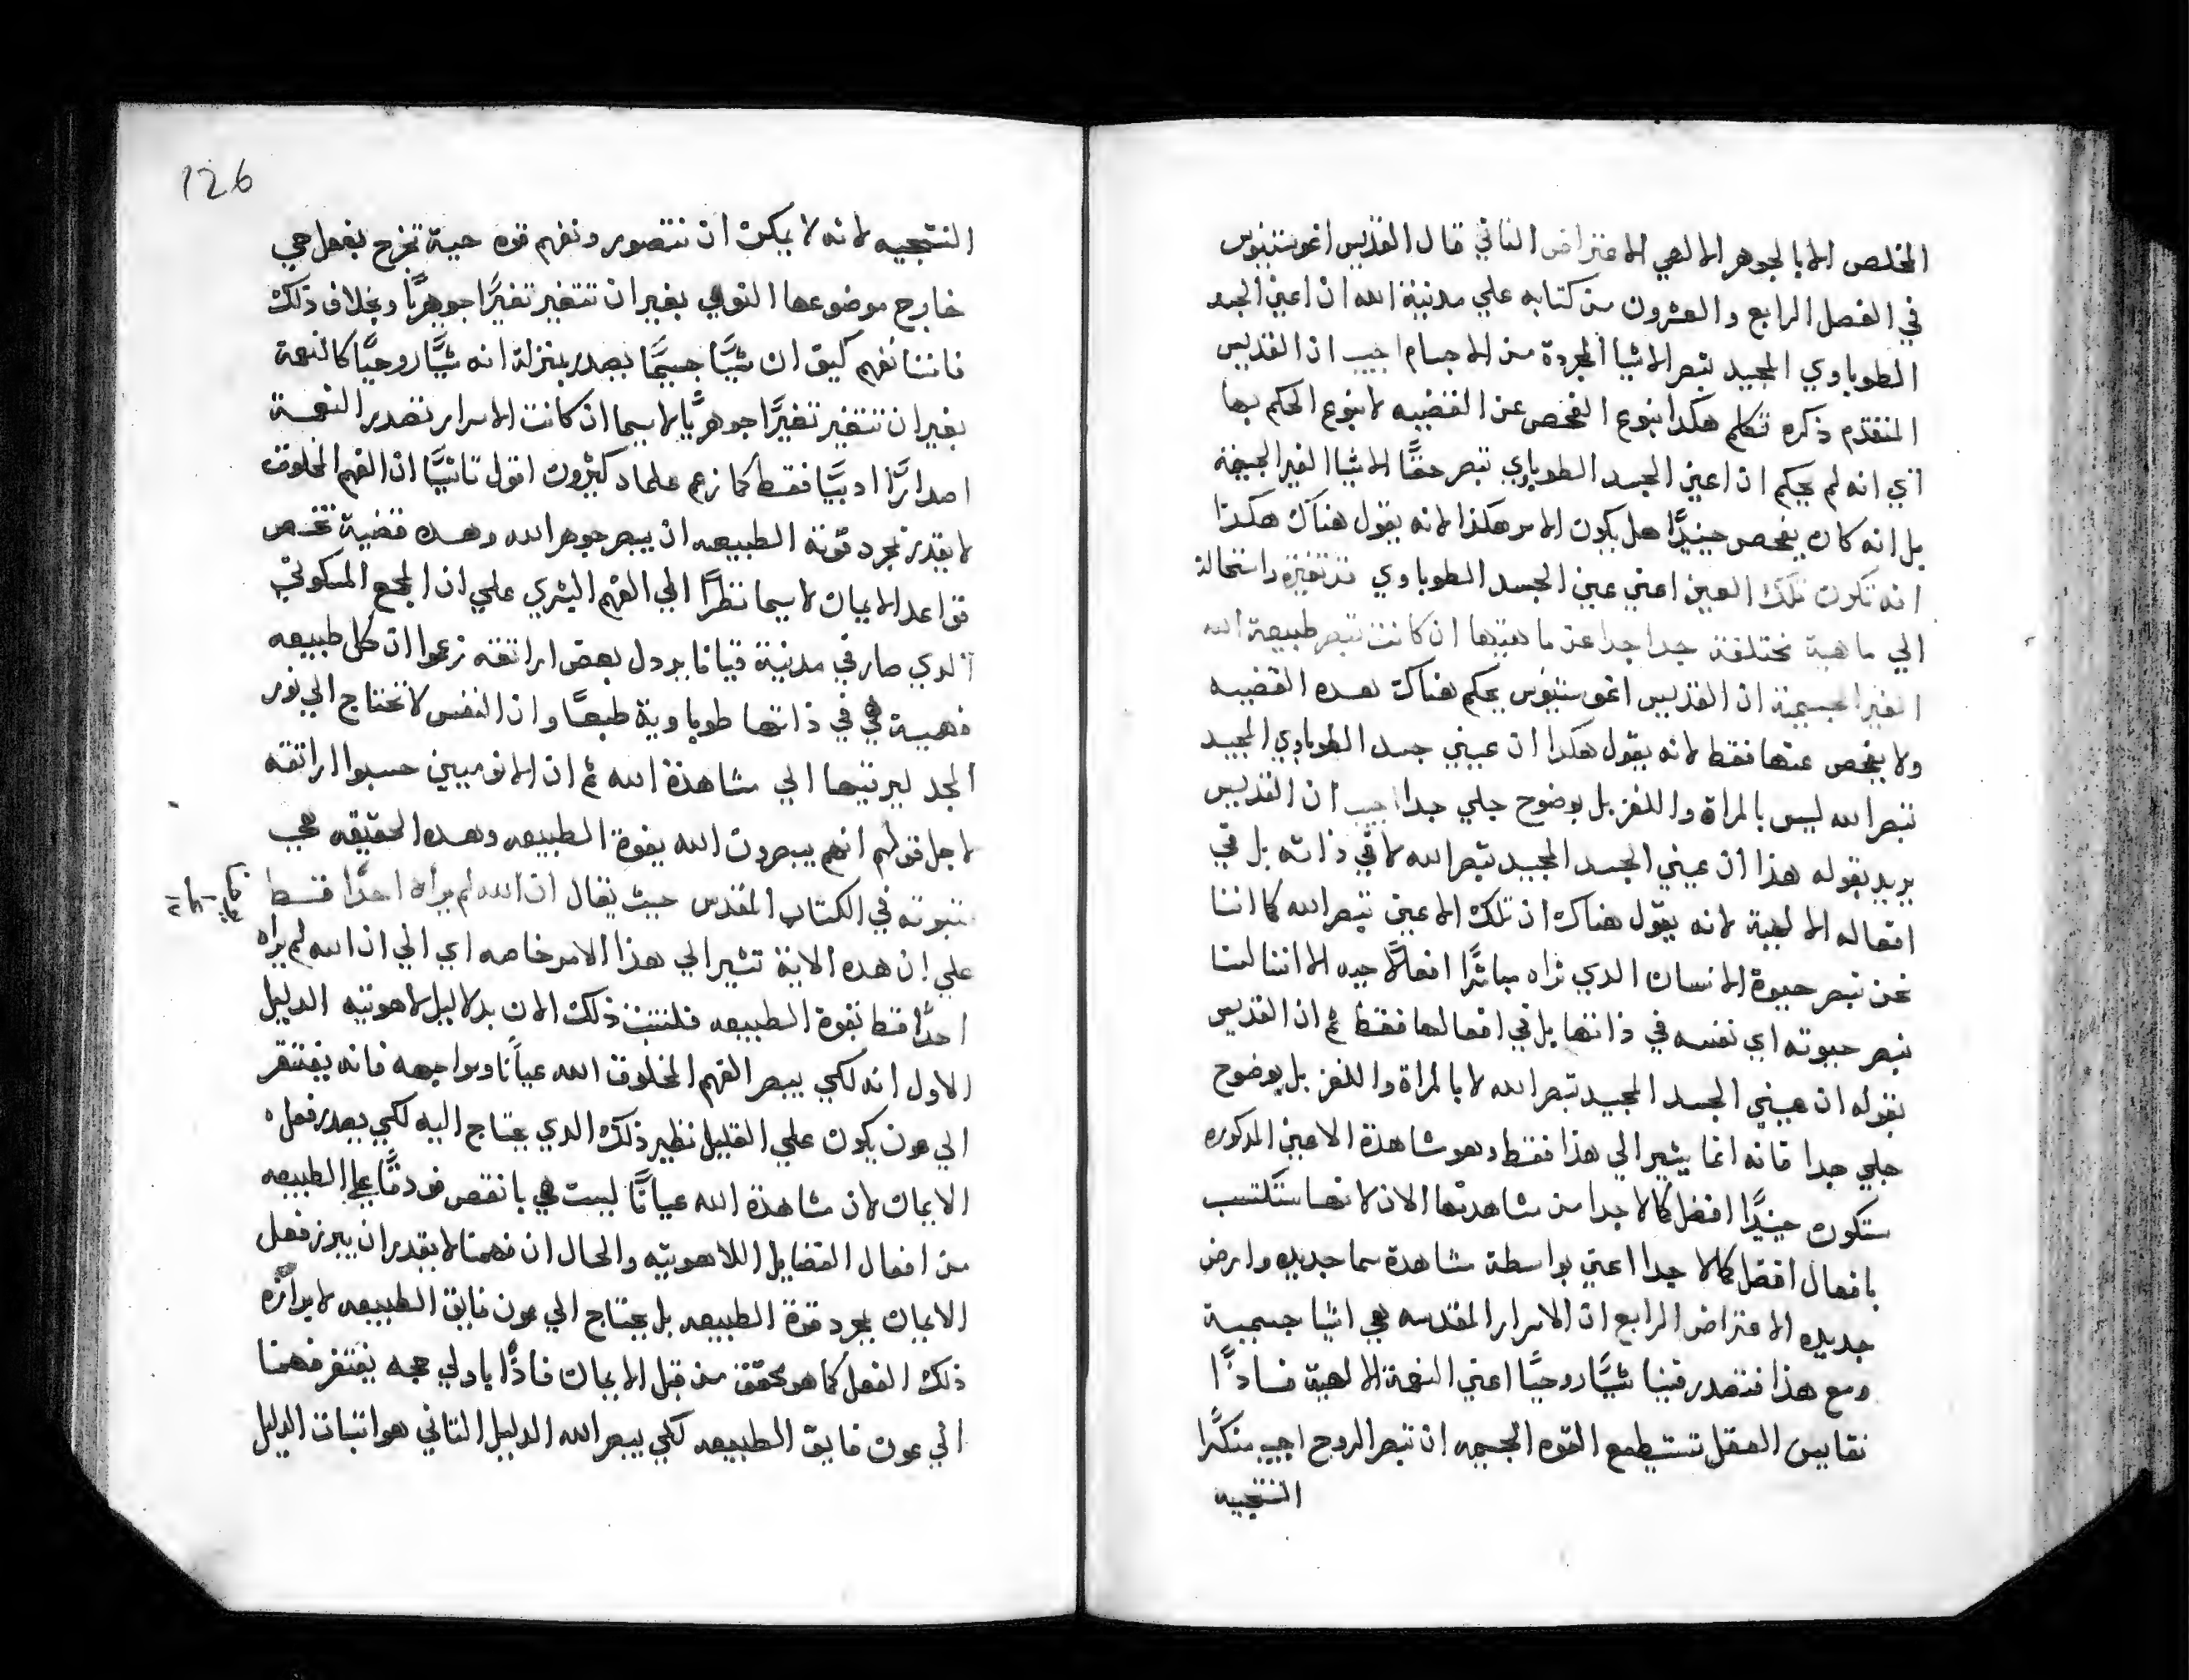 المخلص الا بالجوهر الالهي الاعتراض الثاني قال القديس اغوستينوس
في الفصل الرابع والعشرون من كتابه علي مدينة الله ان اعين الجسد
الطوباوي المجيد تبصر الاشيا المجردة من الاجسام اجيب ان القديس
المتقدم ذكره تكلم هكذا بنوع الفحص عن القضيه لا بنوع الحكم بها
اي انه لم يحكم ان اعين الجسد الطوباوي تبصر حقًا الاشيا الغير الجسيمة
بل انه كان يفحص حينيدًا هل يكون الامر هكذا لانه يقول هناك هكذا
انه تكون تلك العين اعني عين الجسد الطوباوي واستحالة
الي ماهية مختلفة جدا جدا عن ماهيتها ان كانت تبصر طبيعة الله
الغير الجسيمة ان القديس اغوستينوس يحكم هناك بهده القضيه
ولا يفحص عنها فقط لانه يقول هكدا ان عيني جسد الطوباوي المجيد
تبصر الله ليس بالمراة واللغز بل بوضوح جلي جدا اجيب ان القديس
يريد بقوله هذا ان عيني الجسد المجيد تبصر الله لا في ذاته بل في
افعاله الالهية لانه يقول هناك ان تلك الاعين تبصر الله كما اننا
نحن نبصر حيوة الانسان الدي نراه مباشرًا افعالًا حيه الا اننا لسنا
نبصر حيوته اي نفسه في ذاتها بل في افعالها فقط ثم ان القديس
بقوله ان عيني الجسد المجيد تبصر الله لا بالمراة واللغز بل بوضوح
جلي جدا فانه انما يشير الي هذا فقط وهو مشاهدة الاعين المدكوره
ستكون حينيدًا افضل كمالا جدا من مشاهدتها الان لانها ستكتسب
بافعال افضل كمالا جدا اعني بواسطة مشاهدة سما جديده وارض
جديده الاعتراض الرابع ان الاسرار المقدسه هي اشيا جسمية
ومع هذا فتصدر فينا شيًا روحيًا اعني النعمة الالهية فادًا
نقايص العقل تستطيع القوه الجسميه ان تبصر الروح اجيب منكرًا
النتجيه
126
النتجيه لانه لا يمكن ان نتصور ونفهم قوه حية تخرج بفعل حي
خارج موضوعها النوعي بغير ان تتغير تغيرًا جوهريًا وبخلاف ذلك
فاننا نفهم كيق ان شيًا جسيمًا يصدر بمنزلة انه شيًا روحيًا كالنعمة
بغير ان تتغير تغيرًا جوهريًا لا سيما ان كانت الاسرار تصدر النعمة
اصدارًا ادبيًا فقط كما زعم علماد كثيرون اقول ثانيًا ان الفهم المخلوق
لا يقدر بمجرد قوته الطبيعه ان يبصر جوهر الله وهده قضية تخص
قواعد الايمان لا سيما نظرًا الي الفهم البشري علي ان المجمع المسكوني
الدي صار في مدينة فيانا يردل بعض اراتقه زعموا ان كل طبيعه
فهمية هي في ذاتها طوباوية طبعًا وان النفس لا تحتاج الي نور
المجد ليرقيها الي مشاهدة الله ثم ان الانوميين حسبوا اراتقه
لاجل قولهم انهم يبصرون الله بقوة الطبيعه وهده الحقيقه هي
متبوته في الكتاب المقدس حيث يقال ان الله لم يراه احدًا قط
علي ان هده الاية تشير الي هذا الامر خاصه اي الي ان الله لم يراه
احدًا قط بقوة الطبيعه فلنتبت ذلك الان بدلاليل لاهوتيه الدليل
الاول انه لكي يبصر الفهم المخلوق الله عيانًا ومواجهه فانه يفتقر
الي عون يكون علي القليل نظير ذلك الدي يحتاج اليه لكي يصدر فعل
الايمان لان مشاهدة الله عيانًا ليست هي بانقص فودقًا علي الطبيعه
من افعال الفضايل اللاهوتيه والحال ان فهمنا لا يقدر ان يبرز فعل
الايمان بمجرد قوة الطبيعه بل يحتاج الي عون فايق الطبيعه لابرازه
ذلك الفعل كما هو محقق من قبل الايمان فادًا باولي حجه يفتقر فهمنا
الي عون فايق الطبيعه لكي يبصر الله الدليل التاني هو اتبات الدليل